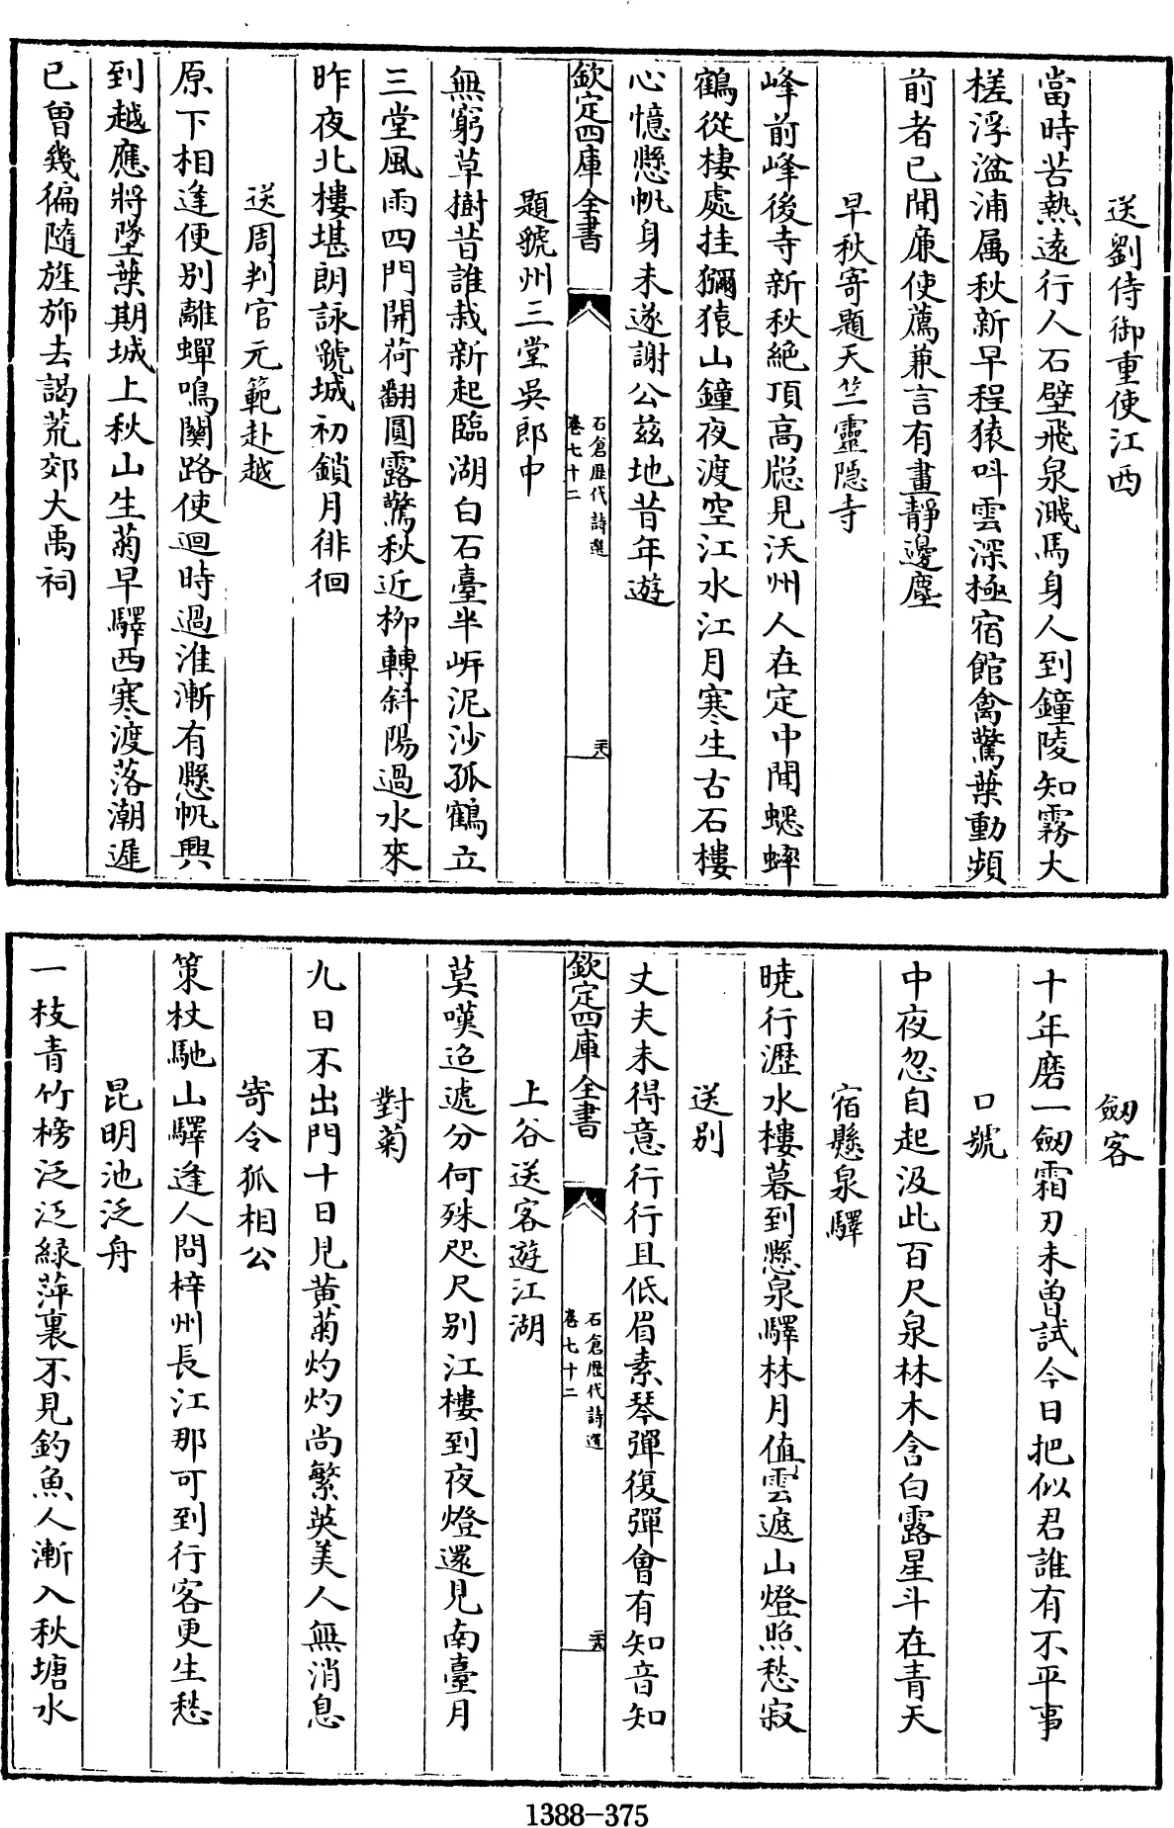 送劉侍御重使江西
當時苦熱遠行人石壁飛泉濺馬身人到鐘陵知霧大
槎浮湓浦属秋新早程猿呌雲深極宿館禽驚葉動頻
前者已聞亷使薦兼言有畫靜邊塵
早秋寄題天竺靈隠寺
峰前峰後寺新秋絶頂高牎見沃州人在定中聞蟋蟀
鶴從棲處挂獼猿山鐘夜渡空江水江月寒生古石樓
心憶懸帆身未遂謝公兹地昔年遊
欽定四庫全書
石倉歴代詩選
卷七十二
題虢州三堂吳郎中
無窮草樹昔誰栽新起臨湖白石臺半㟁泥沙孤鶴立
三堂風雨四門開荷翻圓露驚秋近栁轉斜陽過水來
昨夜北樓堪朗詠虢城初鎖月徘徊
送周判官元範赴越
原下相逢便别離蟬鳴闗路使迴時過淮漸有懸帆興
到越應將墜葉期城上秋山生菊早驛西寒渡落潮遲
已曽幾徧隨旌斾去謁荒郊大禹祠
劒客
十年磨一劒霜刃未曽試今日把似君誰有不平事
口號
中夜忽自起汲此百尺泉林木含白露星斗在青天
宿懸泉驛
曉行瀝水樓暮到懸泉驛林月值雲遮山燈照愁寂
送别
丈夫未得意行行且低眉素琴彈復彈會有知音知
欽定四庫全書
石倉歴代詩選
卷七十二
上谷送客遊江湖
莫嘆迢遞分何殊咫尺别江樓到夜燈還見南臺月
對菊
九日不出門十日見黄菊灼灼尚繁英美人無消息
寄令狐相公
策杖馳山驛逢人問梓州長江那可到行客更生愁
昆明池泛舟
一枝青竹榜泛泛緑萍裏不見釣魚人漸入秋塘水
1388-375